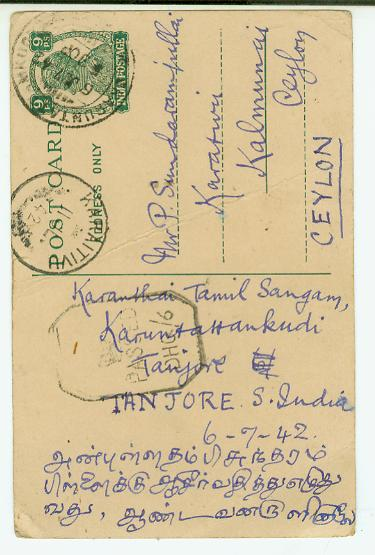 9 PS
9 PS
INDIA POSTAGE
POST CARD
ADDRESS ONLY
KARAITIVU
Mr P. Sundarampillai
Karativu
Kalmunai
Ceylon
CEYLON
PASSED
DHC/6
Karanthai Tamil Sangam,
Karuntattankudi
Tanjore
TANJORE S. India
6-7-42.
அன்புள்ள தம்பி சுந்தரம்
பிள்ளைக்கு ஆசீர்வதித்து எழுது
வது, ஆண்டவனருளினாலே